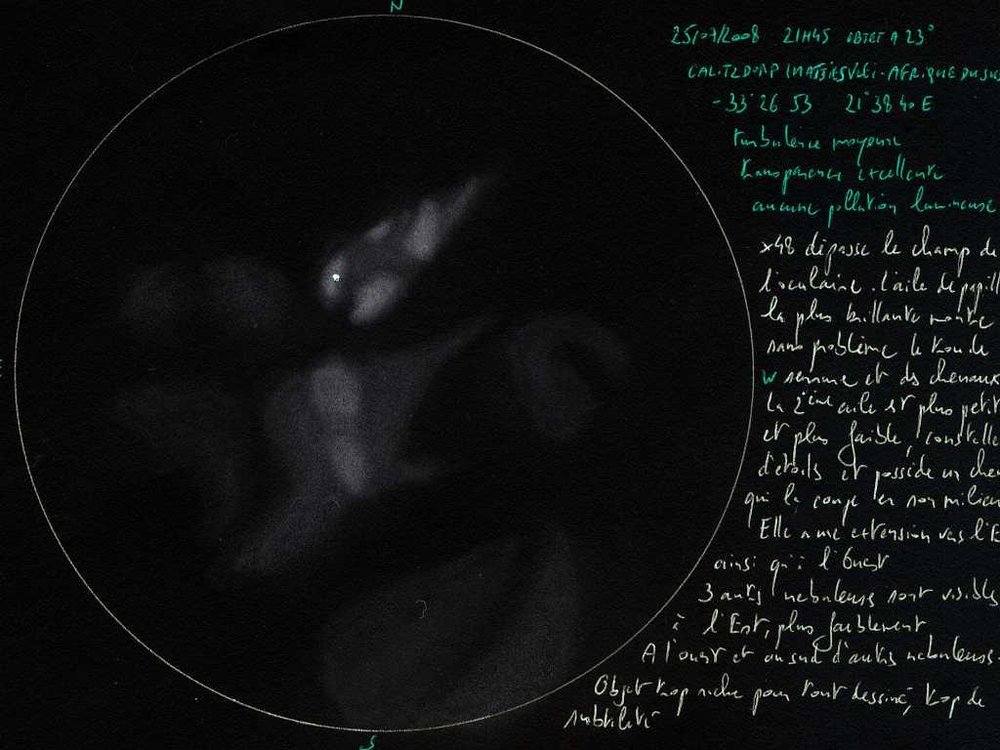 N
25/07/2008 21H45 OBJET A 23°
CALITZDORP AFRIQUE DU SU
-33°26 53 21°38 40 E
turbulence moyenne
transparence excellente
aucune pollution lumineuse
x48 dépasse le champ de
l'oculaire. L'aile de papill
la plus brillante montre
sans problème le trou de
W serrure et des chenaux
la 2ème aile est plus petit
et plus faible, constellé
d'étoils et possède un chen
qui la coupe en son milieu
Elle a une extension vers l'E
ainsi qu'à l'Ouest
3 autres nebuleuses sont visibles
à l'Est, plus faiblement
A l'ouest et au sud d'autres nebuleuses
Objet trop riche pour tout dessiner, trop de
subtilité
S